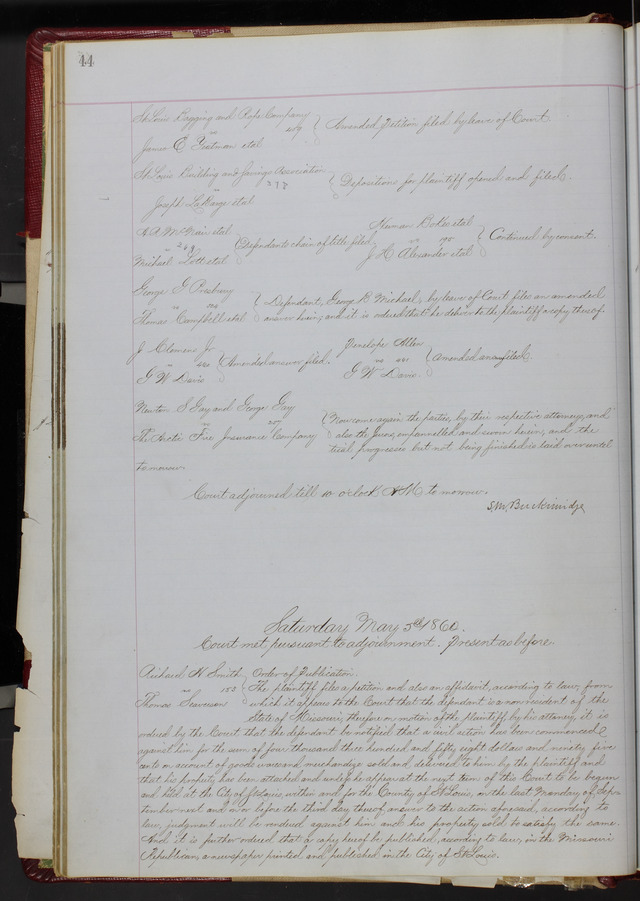 44
St Louis Bagging and Rope Company
vs 289 } Amended Petition filed by leave of Court
James E Yeatman etal
St Louis Building and Savings Association
vs 378 } Deposition for plaintiff opened and filed.
Joseph LaBarge etal
A.A. McNair etal Herman Boker etal
vs 249 } Defendants chain of title filed vs 190 } Continued by consent.
Michael Lott etal J. H. Alexander etal
George G Presbury } Defendant, George R Michael, by leave of Court files an amended
vs
Thomas Campbell etal answer herein, and it is ordered that he deliver to the plaintiff a copy thereof.
J. Clemens Jr. Penelope Allen
vs } Amended answer filed. vs } Amended answer filed.
G W Davis G W Davis
Newton S Gay and George Gay } Now come again the parties, by their respective attorneys, and
vs 207
The Arctic Fire Insurance Company also the Jurors, empannelled and sworn herein, and the
trial progresses but not being finished is laid over until
tomorrow.
Court adjourned till 10 o'clock A M. to morrow.
S.M. Breckinridge
Saturday May 5th 1860.
Court met pursuant to adjournment. Present as before
Richard H Smith } Order of Publication.
vs 152 The plaintiff files a petition and also an affidavit, according to law, from
Thomas which it appears to the Court that the defendant is a non resident of the
State of Missouri; therefore on motion of the plaintiff by his attorney, it is
ordered by the Court that the defendant be notified that a civil action has been commenced
against him for the sum of four thousand three hundred and fifty eight dollars and ninety five
cents on account of goods wares and merchandize sold and delivered to him by the plaintiff and
that his property has been attached and unless he appear at the next term of this Court to be begun
and held at the City of St Louis, within and for the County of St Louis, on the last Monday of Sep-
tember next and on or before the third day thereof answer to the action aforesaid, according to
law, judgment will be rendered against him and his property sold to satisfy the same.
And it is further ordered that a copy hereof be published, according to law, in the Missouri
Republican, a newspaper printed and published in the City of St Louis.